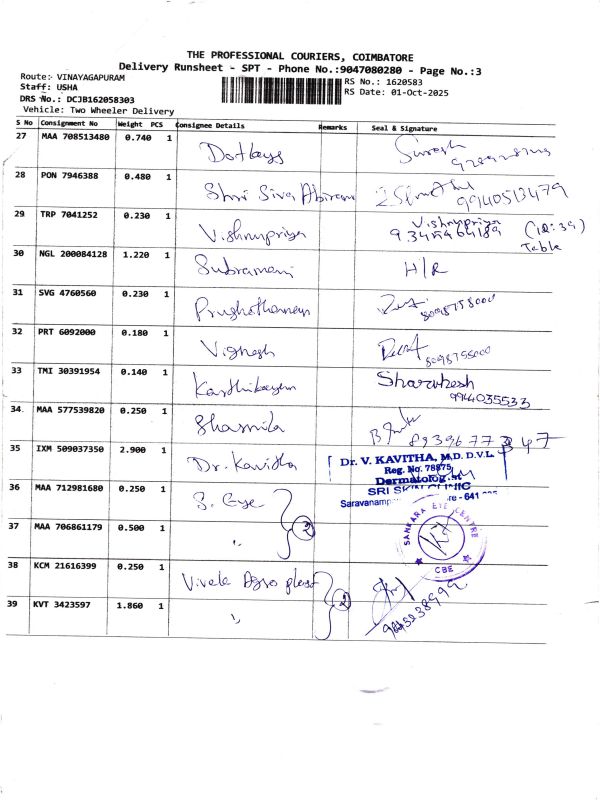 THE PROFESSIONAL COURIERS, COIMBATORE
Delivery Runsheet - SPT - Phone No.:9047080280 - Page No.:3
Route:- VINAYAGAPURAM
RS No.: 1620583
Staff: USHA
RS Date: 01-Oct-2025
DRS No.: DCJB162058303
Vehicle: Two Wheeler Delivery
S No Consignment No Weight PCS Consignee Details Remarks Seal & Signature
27 MAA 708513480 0.740 1 Dotkays Suresh
28 PON 7946388 0.480 1 Shri Siva Abirami 9940513479
29 TRP 7041252 0.230 1 Vishnupriya Vishnupriya (12:39)
Table
30 NGL 200084128 1.220 1 Subramani H/R
31 SVG 4760560 0.230 1 Prushothaman
32 PRT 6092000 0.180 1 Vignesh
33 TMI 30391954 0.140 1 Karthikeyan Sharukesh
9944035533
34 MAA 577539820 0.250 1 Sharmila
35 IXM 509037350 2.900 1 Dr. Kavitha Dr. V. KAVITHA, M.D. D.V.L.
Reg. No. 78875
Dermatologist
SRI SKIN CLINIC
36 MAA 712981680 0.250 1 S. Eye 2
SANKARA EYE CENTRE
CBE
37 MAA 706861179 0.500 1 "
38 KCM 21616399 0.250 1 Vivek Agro plast 2
39 KVT 3423597 1.860 1 "